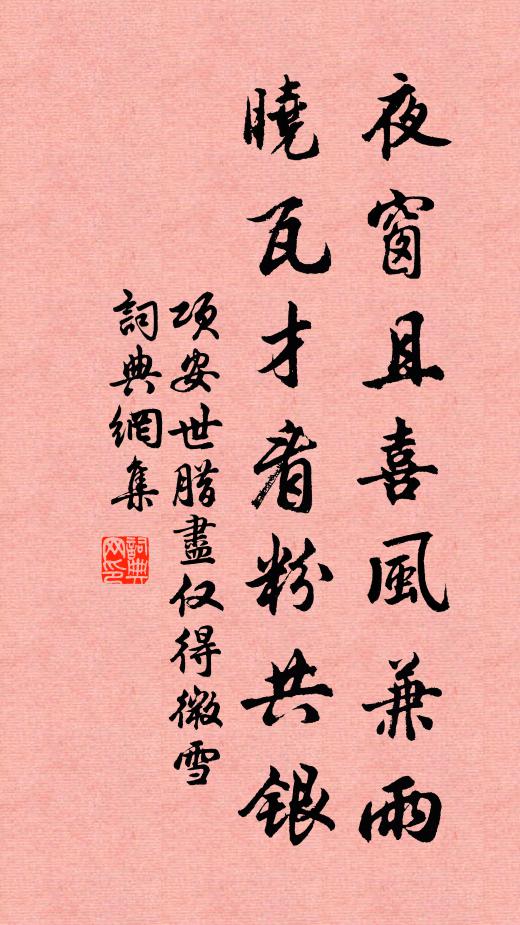 夜窗且喜風兼雨
曉瓦才看粉共銀
項安世腊盡仅得微雪
詞典網集
詞典网印